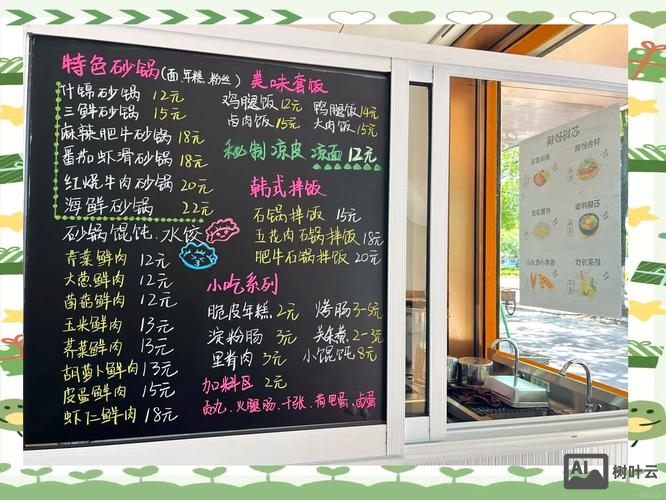 特色砂锅(面 年糕 粉丝)
什锦砂锅 12元
三鲜砂锅 15元
麻辣肥牛砂锅 18元
番茄虾滑砂锅 18元
红烧牛肉砂锅 20元
海鲜砂锅 22元
砂锅馄饨.水饺
青菜鲜肉 12元
大葱鲜肉 12元
菌菇鲜肉 12元
玉米鲜肉 13元
荠菜鲜肉 13元
胡萝卜鲜肉 13元
皮蛋鲜肉 15元
虾仁鲜肉 18元
美味套饭
鸡腿饭 12元 鸭腿饭 14元
卤肉饭 15元 大肉饭 15元
秘制凉皮 凉面 12元
韩式拌饭
石锅拌饭 15元
五花肉石锅拌饭 18元
肥牛石锅拌饭 20元
小吃系列
脆皮年糕 2元 烤肠 3-5元
淀粉肠 3元 关东煮 2-3元
里脊肉 3元 小馄饨 8元
加料区 2元
火腿肠.千张.荷包蛋.卤蛋
AI 树叶云